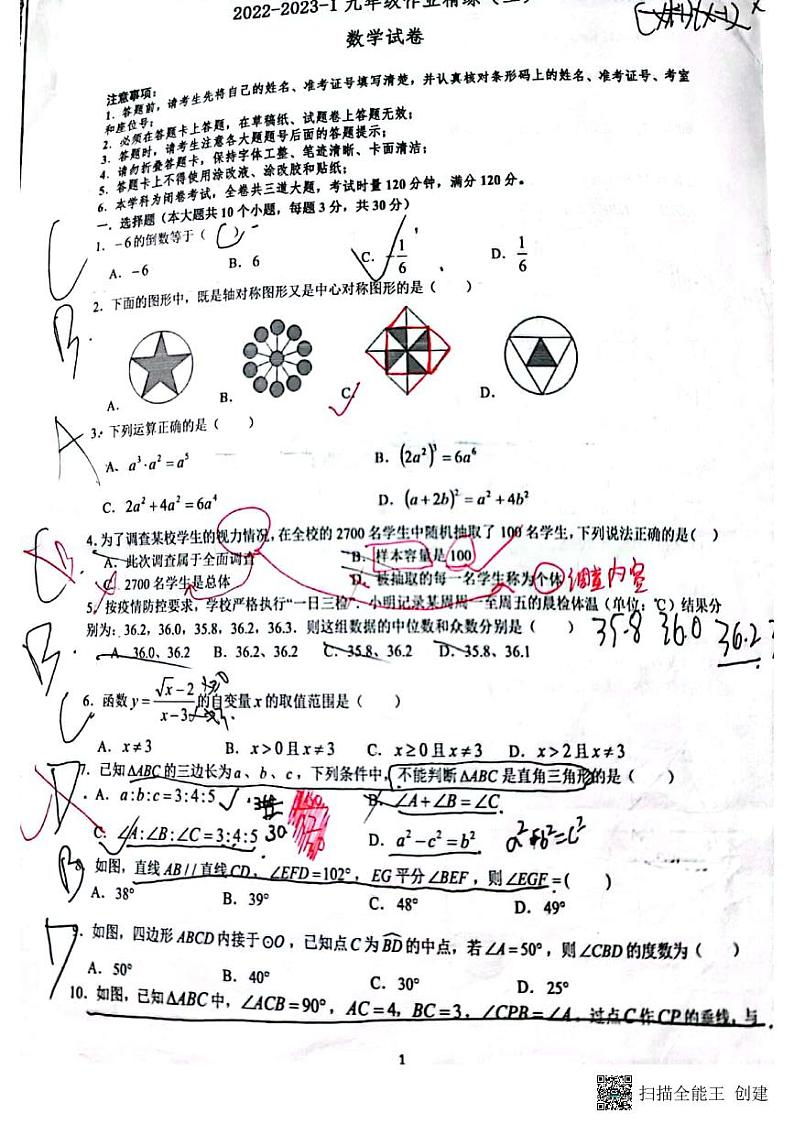 2022-2023-1 九年级作业精练（二）
数学试卷
注意事项：
1．答题前，请考生先将自己的姓名、准考证号填写清楚，并认真核对条形码上的姓名、准考证号、考室
和座位号；
2．必须在答题卡上答题，在草稿纸、试题卷上答题无效；
3．答题时，请考生注意各大题题号后面的答题提示；
4．请勿折叠答题卡，保持字体工整、笔迹清晰、卡面清洁；
5．答题卡上不得使用涂改液、涂改胶和贴纸；
6．本学科为闭卷考试，全卷共三道大题，考试时量 120 分钟，满分 120 分。
一．选择题（本大题共 10 个小题，每题 3 分，共 30 分）
C
1．-6 的倒数等于（ C ）
A．-6 B．6 C．-1/6 D．1/6
B
2．下面的图形中，既是轴对称图形又是中心对称图形的是（ ）
A． B． C． D．
A
3．下列运算正确的是（ ）
A．a³·a²=a⁵ B．(2a²)³=6a⁶
C．2a²+4a²=6a⁴ D．(a+2b)²=a²+4b²
B
4.为了调查某校学生的视力情况，在全校的 2700 名学生中随机抽取了 100 名学生，下列说法正确的是（ ）
A．此次调查属于全面调查 B．样本容量是 100
C．2700 名学生是总体 D．被抽取的每一名学生称为个体 调查内容
5．按疫情防控要求，学校严格执行“一日三检”．小明记录某周周一至周五的晨检体温（单位：℃）结果分
别为：36.2，36.0，35.8，36.2，36.3．则这组数据的中位数和众数分别是（ ） 35.8 36.0 36.2
B
A．36.0、36.2 B．36.2、36.2 C．35.8、36.2 D．35.8、36.1
C
6．函数 y=(√x-2)/(x-3) 的自变量 x 的取值范围是（ ）
A．x≠3 B．x>0且x≠3 C．x≥0且x≠3 D．x>2且x≠3
D
7．已知△ABC 的三边长为 a、b、c，下列条件中，不能判断△ABC 是直角三角形的是（ ）
A．a:b:c=3:4:5 B．∠A+∠B=∠C
C．∠A:∠B:∠C=3:4:5 30 D．a²-c²=b² a²+b²=c²
B
如图，直线 AB//直线 CD，∠EFD=102°，EG 平分∠BEF，则∠EGF=( )
A．38° B．39° C．48° D．49°
D
9．如图，四边形 ABCD 内接于⊙O，已知点 C 为 BD 的中点，若∠A=50°，则∠CBD 的度数为（ ）
A．50° B．40° C．30° D．25°
10．如图，已知△ABC 中，∠ACB=90°，AC=4，BC=3．∠CPB=∠A．过点 C 作 CP 的垂线，与
1
扫描全能王 创建